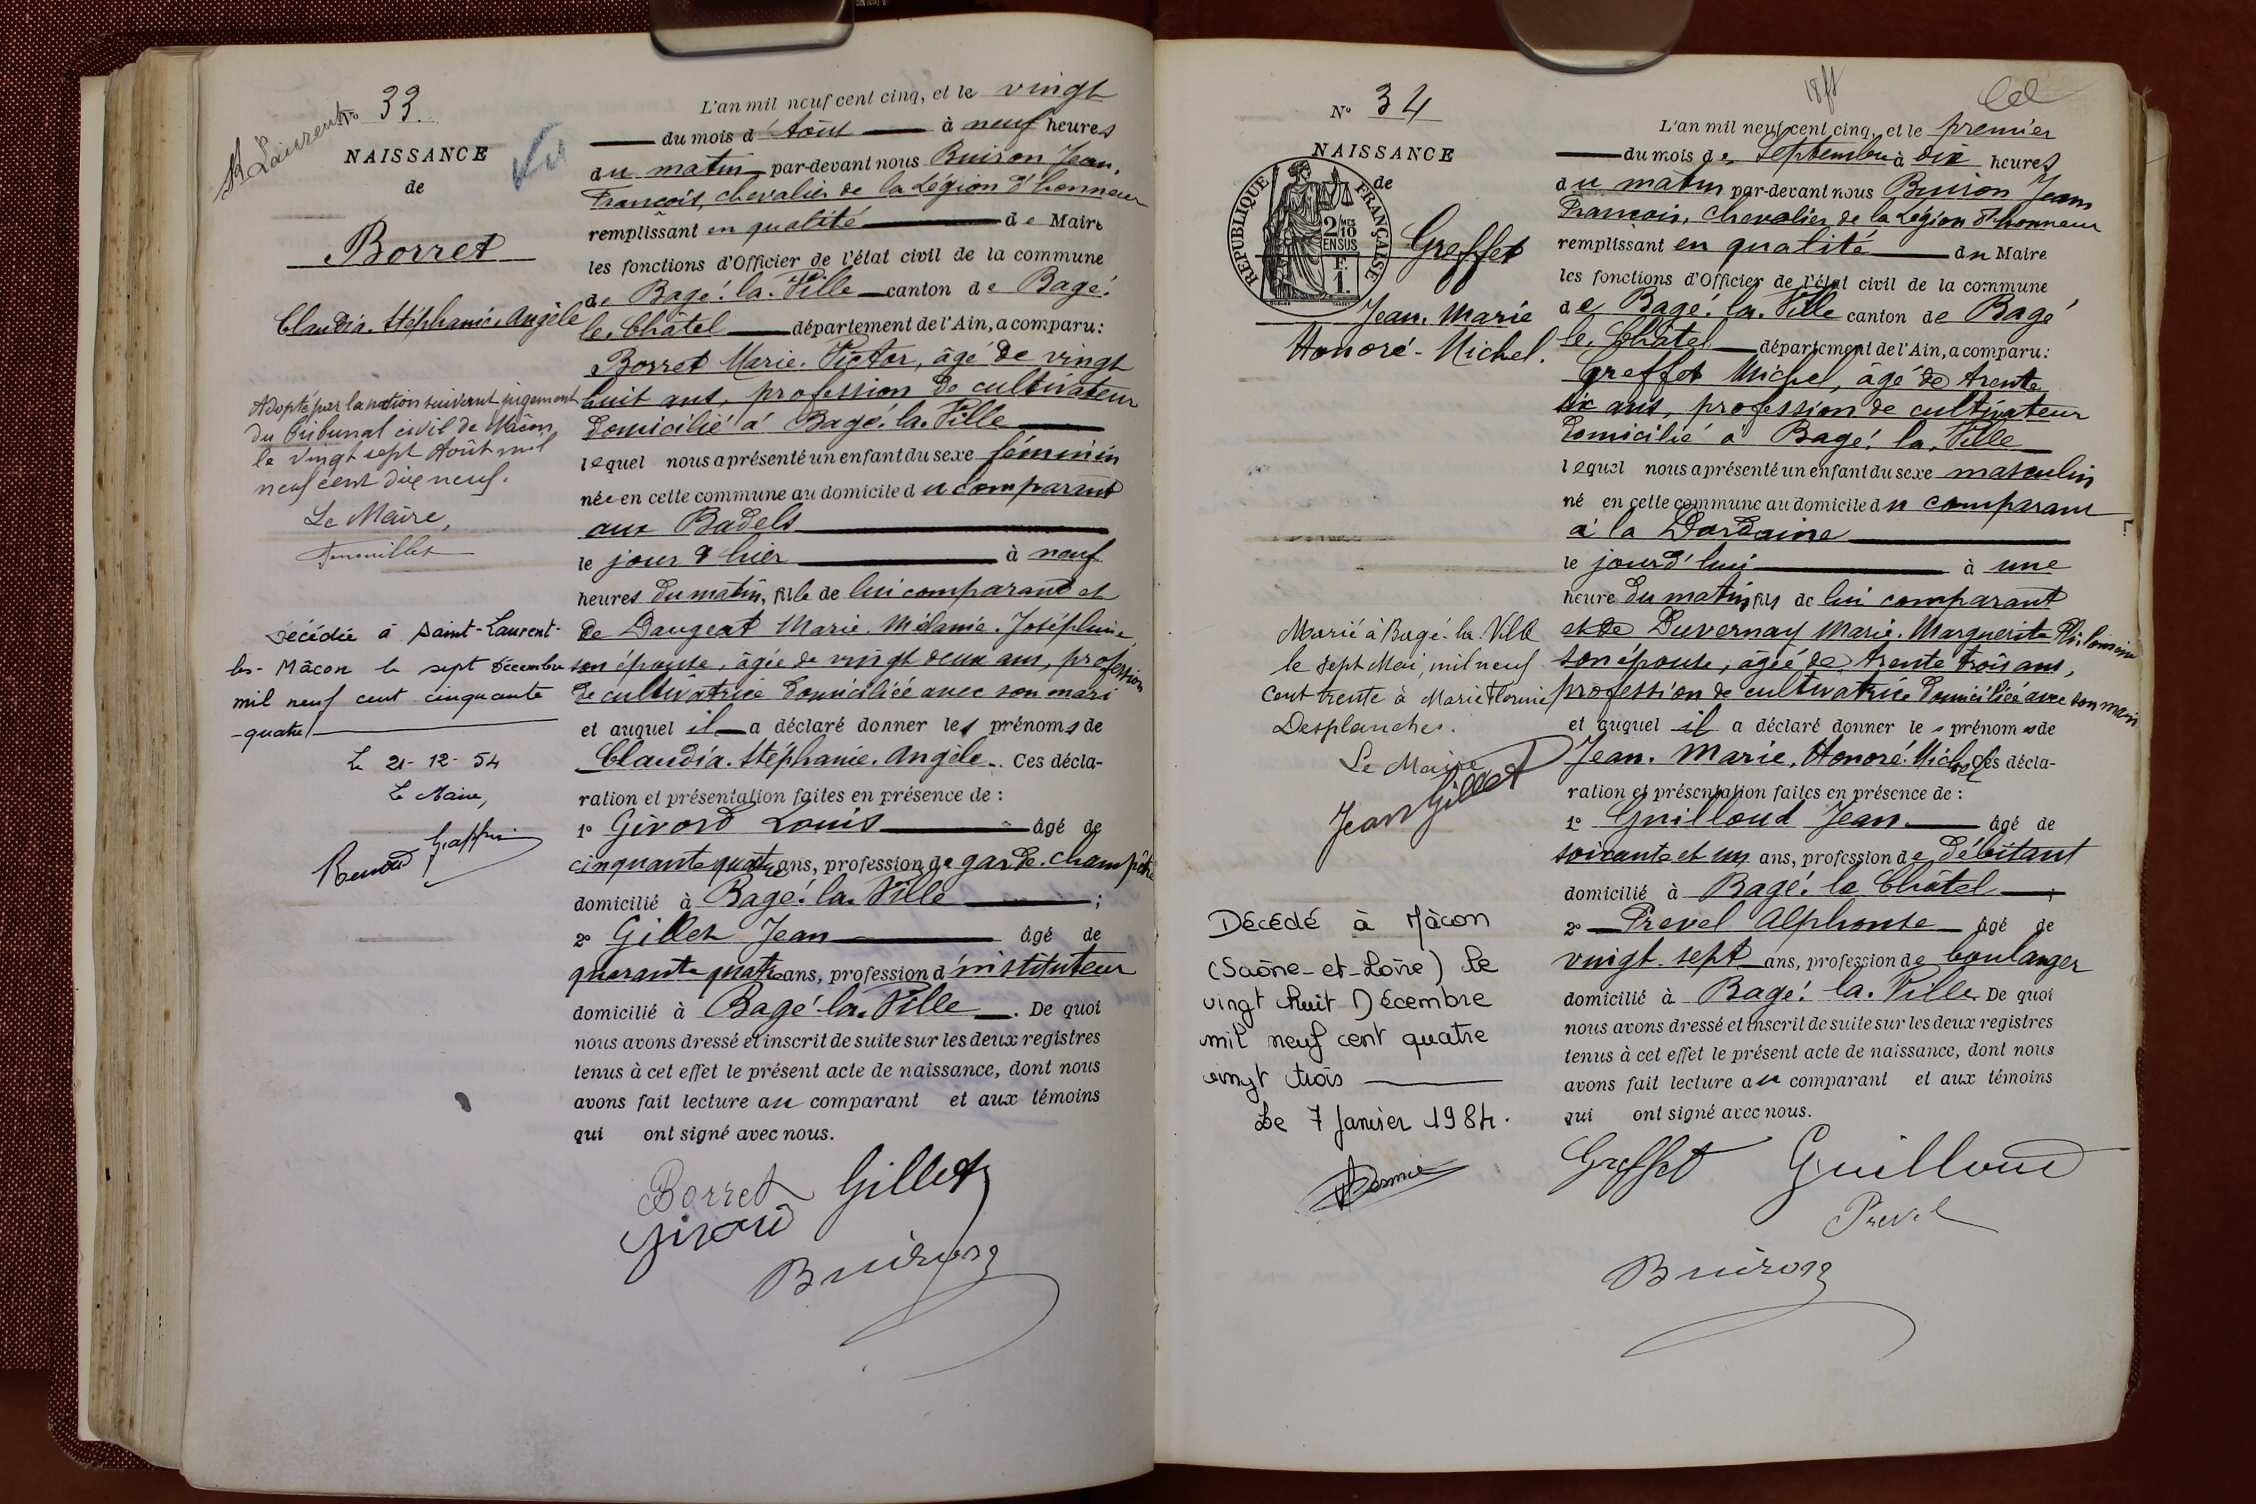 St Laurent
No 33.
NAISSANCE
de
Borret
Claudia. Stéphanie. Angèle
Vu
Adopté par la nation suivant jugement
du tribunal civil de Mâcon,
le vingt sept Août mil
neuf cent dix neuf.
Le Maire,
Décédée à Saint-Laurent-
lès-Mâcon le sept décembre
mil neuf cent cinquante
-quatre
Le 21-12-54
Le Maire,
L'an mil neuf cent cinq, et le vingt
du mois d'Août à neuf heures
du matin par-devant nous Buiron Jean,
François, chevalier de la Légion d'honneur
remplissant en qualité de Maire
les fonctions d'Officier de l'état civil de la commune
de Bagé. la. Ville canton de Bagé.
le. Châtel département de l'Ain, a comparu:
Borret Marie. Victor, âgé de vingt
huit ans, profession de cultivateur
domicilié à Bagé. la. Ville
lequel nous a présenté un enfant du sexe féminin
née en cette commune au domicile du comparant
aux Badels
le jour d'hier à neuf
heures du matin, fille de lui comparant et
de Daugeat Marie. Mélanie. Joséphine
son épouse, âgée de vingt deux ans, profession
de cultivatrice domiciliée avec son mari
et auquel il a déclaré donner les prénoms de
Claudia. Stéphanie. Angèle. Ces décla-
ration et présentation faites en présence de :
1o Girord Louis âgé de
cinquante quatre ans, profession de garde. champêtre
domicilié à Bagé. la. Ville ;
2o Gillet Jean âgé de
quarante quatre ans, profession d'instituteur
domicilié à Bagé. la. Ville. De quoi
nous avons dressé et inscrit de suite sur les deux registres
tenus à cet effet le présent acte de naissance, dont nous
avons fait lecture au comparant et aux témoins
qui ont signé avec nous.
Borret Gillet
Giroud
Buiron
No 34
NAISSANCE
de
RÉPUBLIQUE FRANÇAISE
2/10 MES
EN SUS
F.
1.
Greffet
Jean. Marie
Honoré-Michel.
Marié à Bagé-la-Ville
le sept Mai, mil neuf
cent trente à Marie Florine
Desplanches.
Le Maire
Jean Gillet
Décédé à Mâcon
(Saône-et-Loire) le
vingt huit Décembre
mil neuf cent quatre
vingt trois
Le 7 Janvier 1984.
L'an mil neuf cent cinq, et le premier
du mois de Septembre à dix heures
du matin par-devant nous Buiron Jean
François, chevalier de la Légion d'honneur
remplissant en qualité du Maire
les fonctions d'Officier de l'état civil de la commune
de Bagé. la. Ville canton de Bagé
le. Châtel département de l'Ain, a comparu:
Greffet Michel, âgé de trente
six ans, profession de cultivateur
domicilié à Bagé. la. Ville
lequel nous a présenté un enfant du sexe masculin
né en cette commune au domicile du comparant
à la Dardaine
le jourd'hui à une
heure du matin fils de lui comparant
et de Duvernay Marie. Marguerite Philomène
son épouse, âgée de trente trois ans,
profession de cultivatrice domiciliée avec son mari
et auquel il a déclaré donner les prénoms de
Jean. Marie. Honoré. Michel Ces décla-
ration et présentation faites en présence de :
1o Guilloud Jean âgé de
soixante et un ans, profession de débitant
domicilié à Bagé. le Châtel ;
2o Prevel Alphonse âgé de
vingt. sept ans, profession de boulanger
domicilié à Bagé. la. Ville De quoi
nous avons dressé et inscrit de suite sur les deux registres
tenus à cet effet le présent acte de naissance, dont nous
avons fait lecture au comparant et aux témoins
qui ont signé avec nous.
Greffet Guilloud
Prevel
Buiron